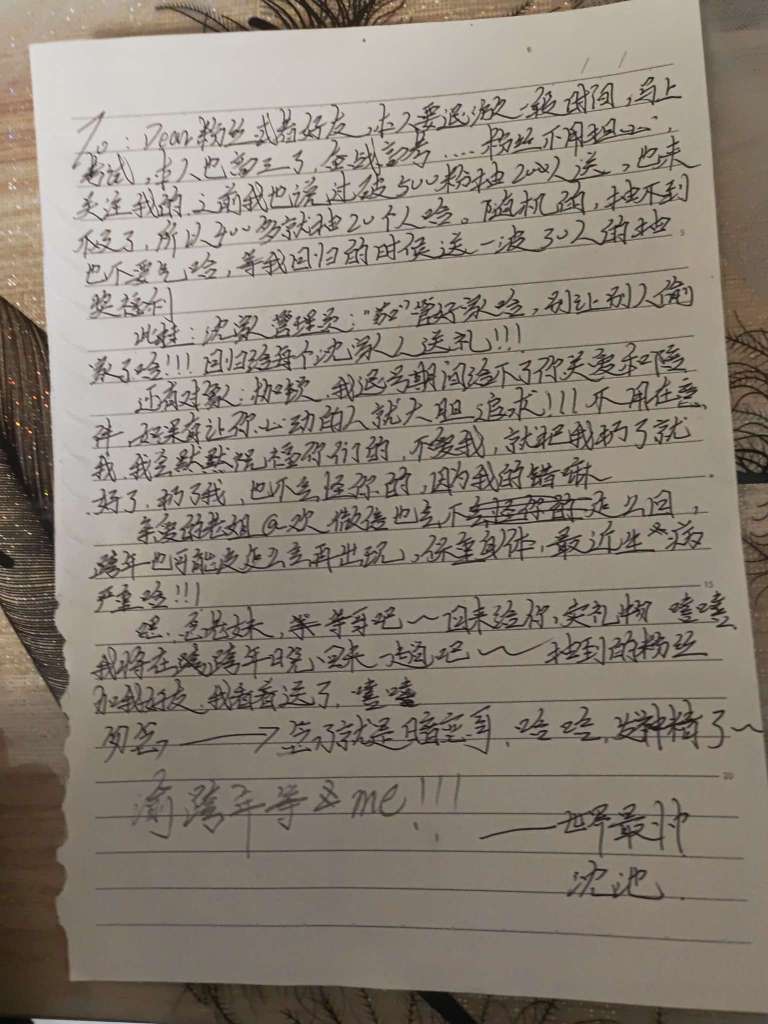 To: Dear 粉丝或者好友,本人要退游一段时间,马上
考试,本人也高三了,备战高考....粉丝不用担心,
关注我的,之前我也说过破500粉抽200人送,也来
不及了,所以400多就抽20个人哈。随机的,抽不到
也不要气哈,等我回归的时候送一波30人的抽
奖福利
此持:沈家人管理员:管好家哈,别让别人偷
家了哈!!!回归给每个沈家人送礼!!!
还有对象:我退号期间给不了你关爱和陪
伴,如果有让你心动的人就大胆追求!!!不用在意
我,我会默默祝福你们的,不爱我,就把我扔了就
好了,扔了我,也不会怪你的,因为我的错嘛
亲爱的老姐@欢 微信也会不会上回,
跨年也可能过之后再出现,保重身体,最近生病
严重哈!!!
老妹,等等哥吧~回来给你买礼物 嘻嘻
我将在跨年晚回来一趟吧~ 抽到的粉丝
加我好友,我看着送了,嘻嘻
→ 就是暗恋哥,哈哈,发神精了~
跨年等me!!!
——世界最帅
沈池